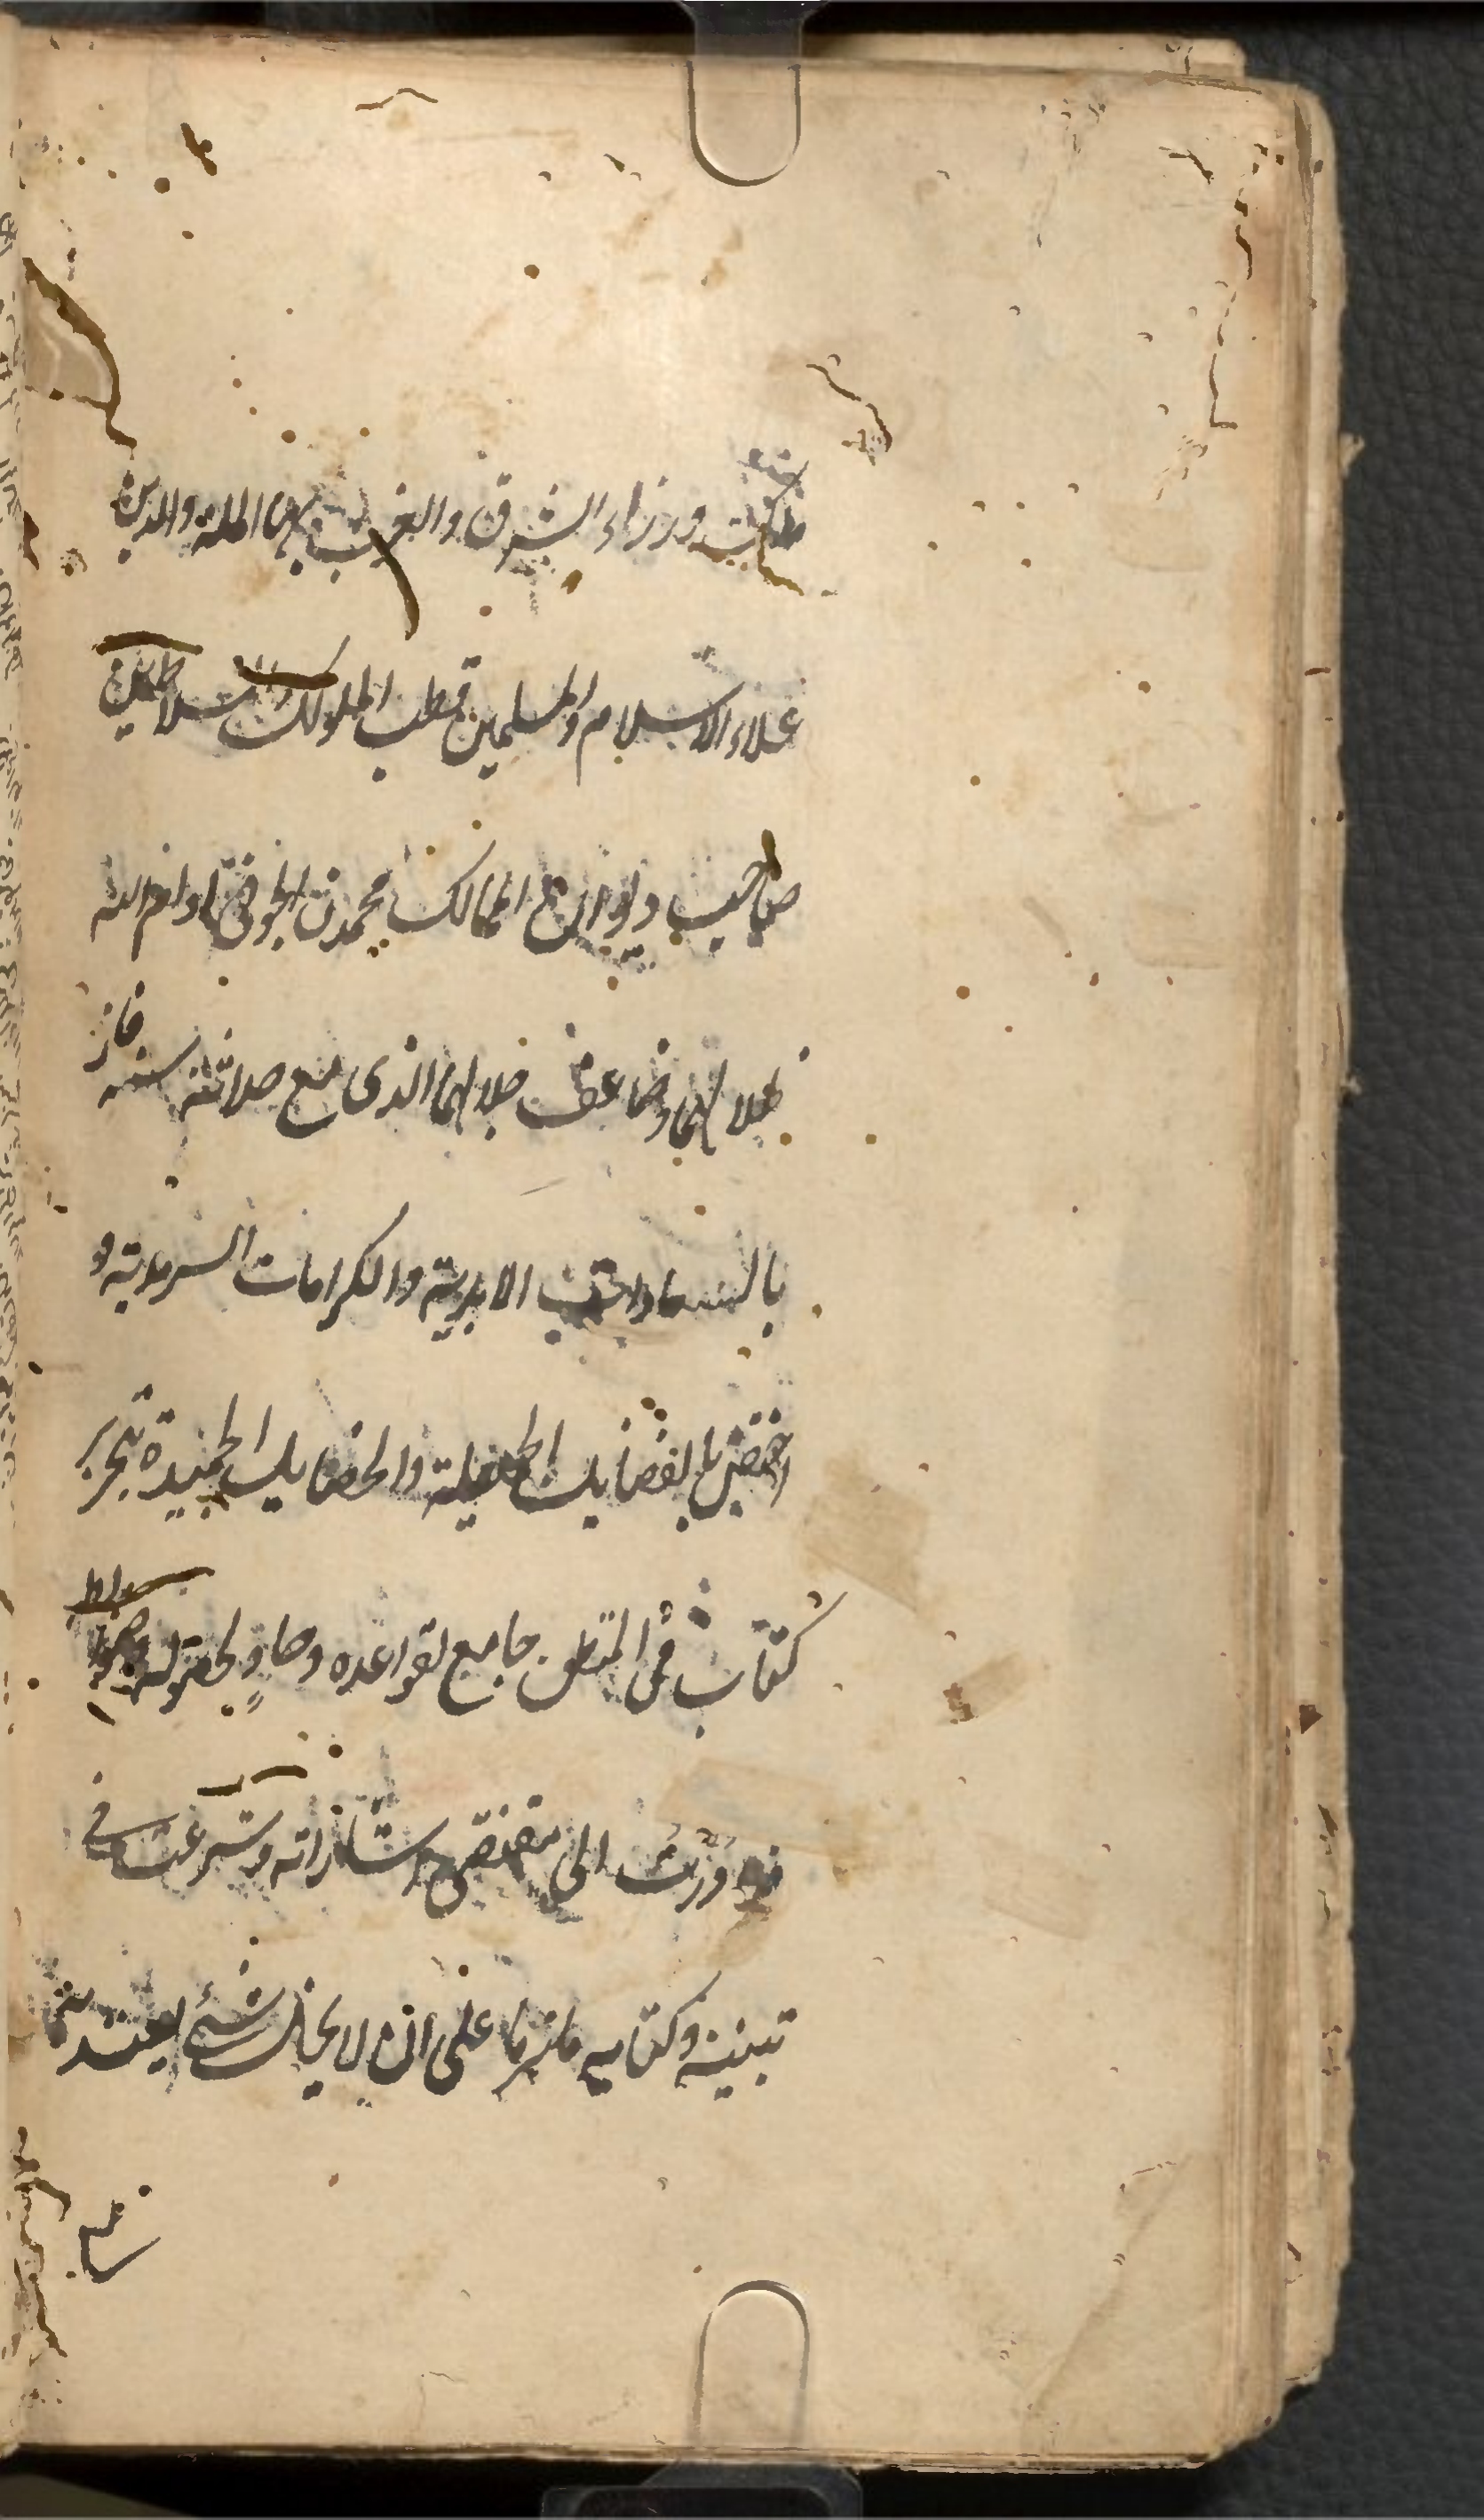 ملك وزراء الشرق والغرب بهاء الملة والدين
علاء الاسلام والمسلمين قطب الملوك والسلاطين
صاحب ديوان الممالك محمد بن الجوينى ادام الله
ظلالهما وضاعف جلالهما الذى مع حداثة سنه فاز
بالسعادات الابدية والكرامات السرمدية و
اختص بالفضايل الجميلة والخصايل الحميدة بتحرير
كتاب فى المنطق جامع لقواعده وحاو لاصوله وضوابطه
فبادرت الى مقتضى اشارته وشرعت فى
تبيينه وكتابه ملتزما على ان لا يخل بشئ يعتد به